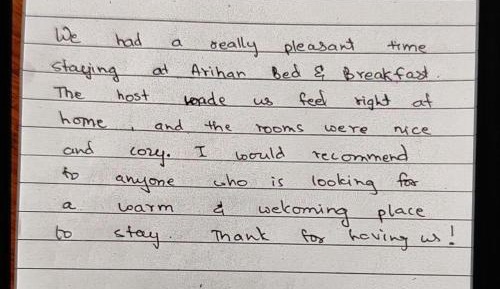 We had a really pleasant time
staying at Arihan Bed & Breakfast.
The host made us feel right at
home, and the rooms were nice
and cozy. I would recommend
to anyone who is looking for
a warm & welcoming place
to stay. Thank for having us!